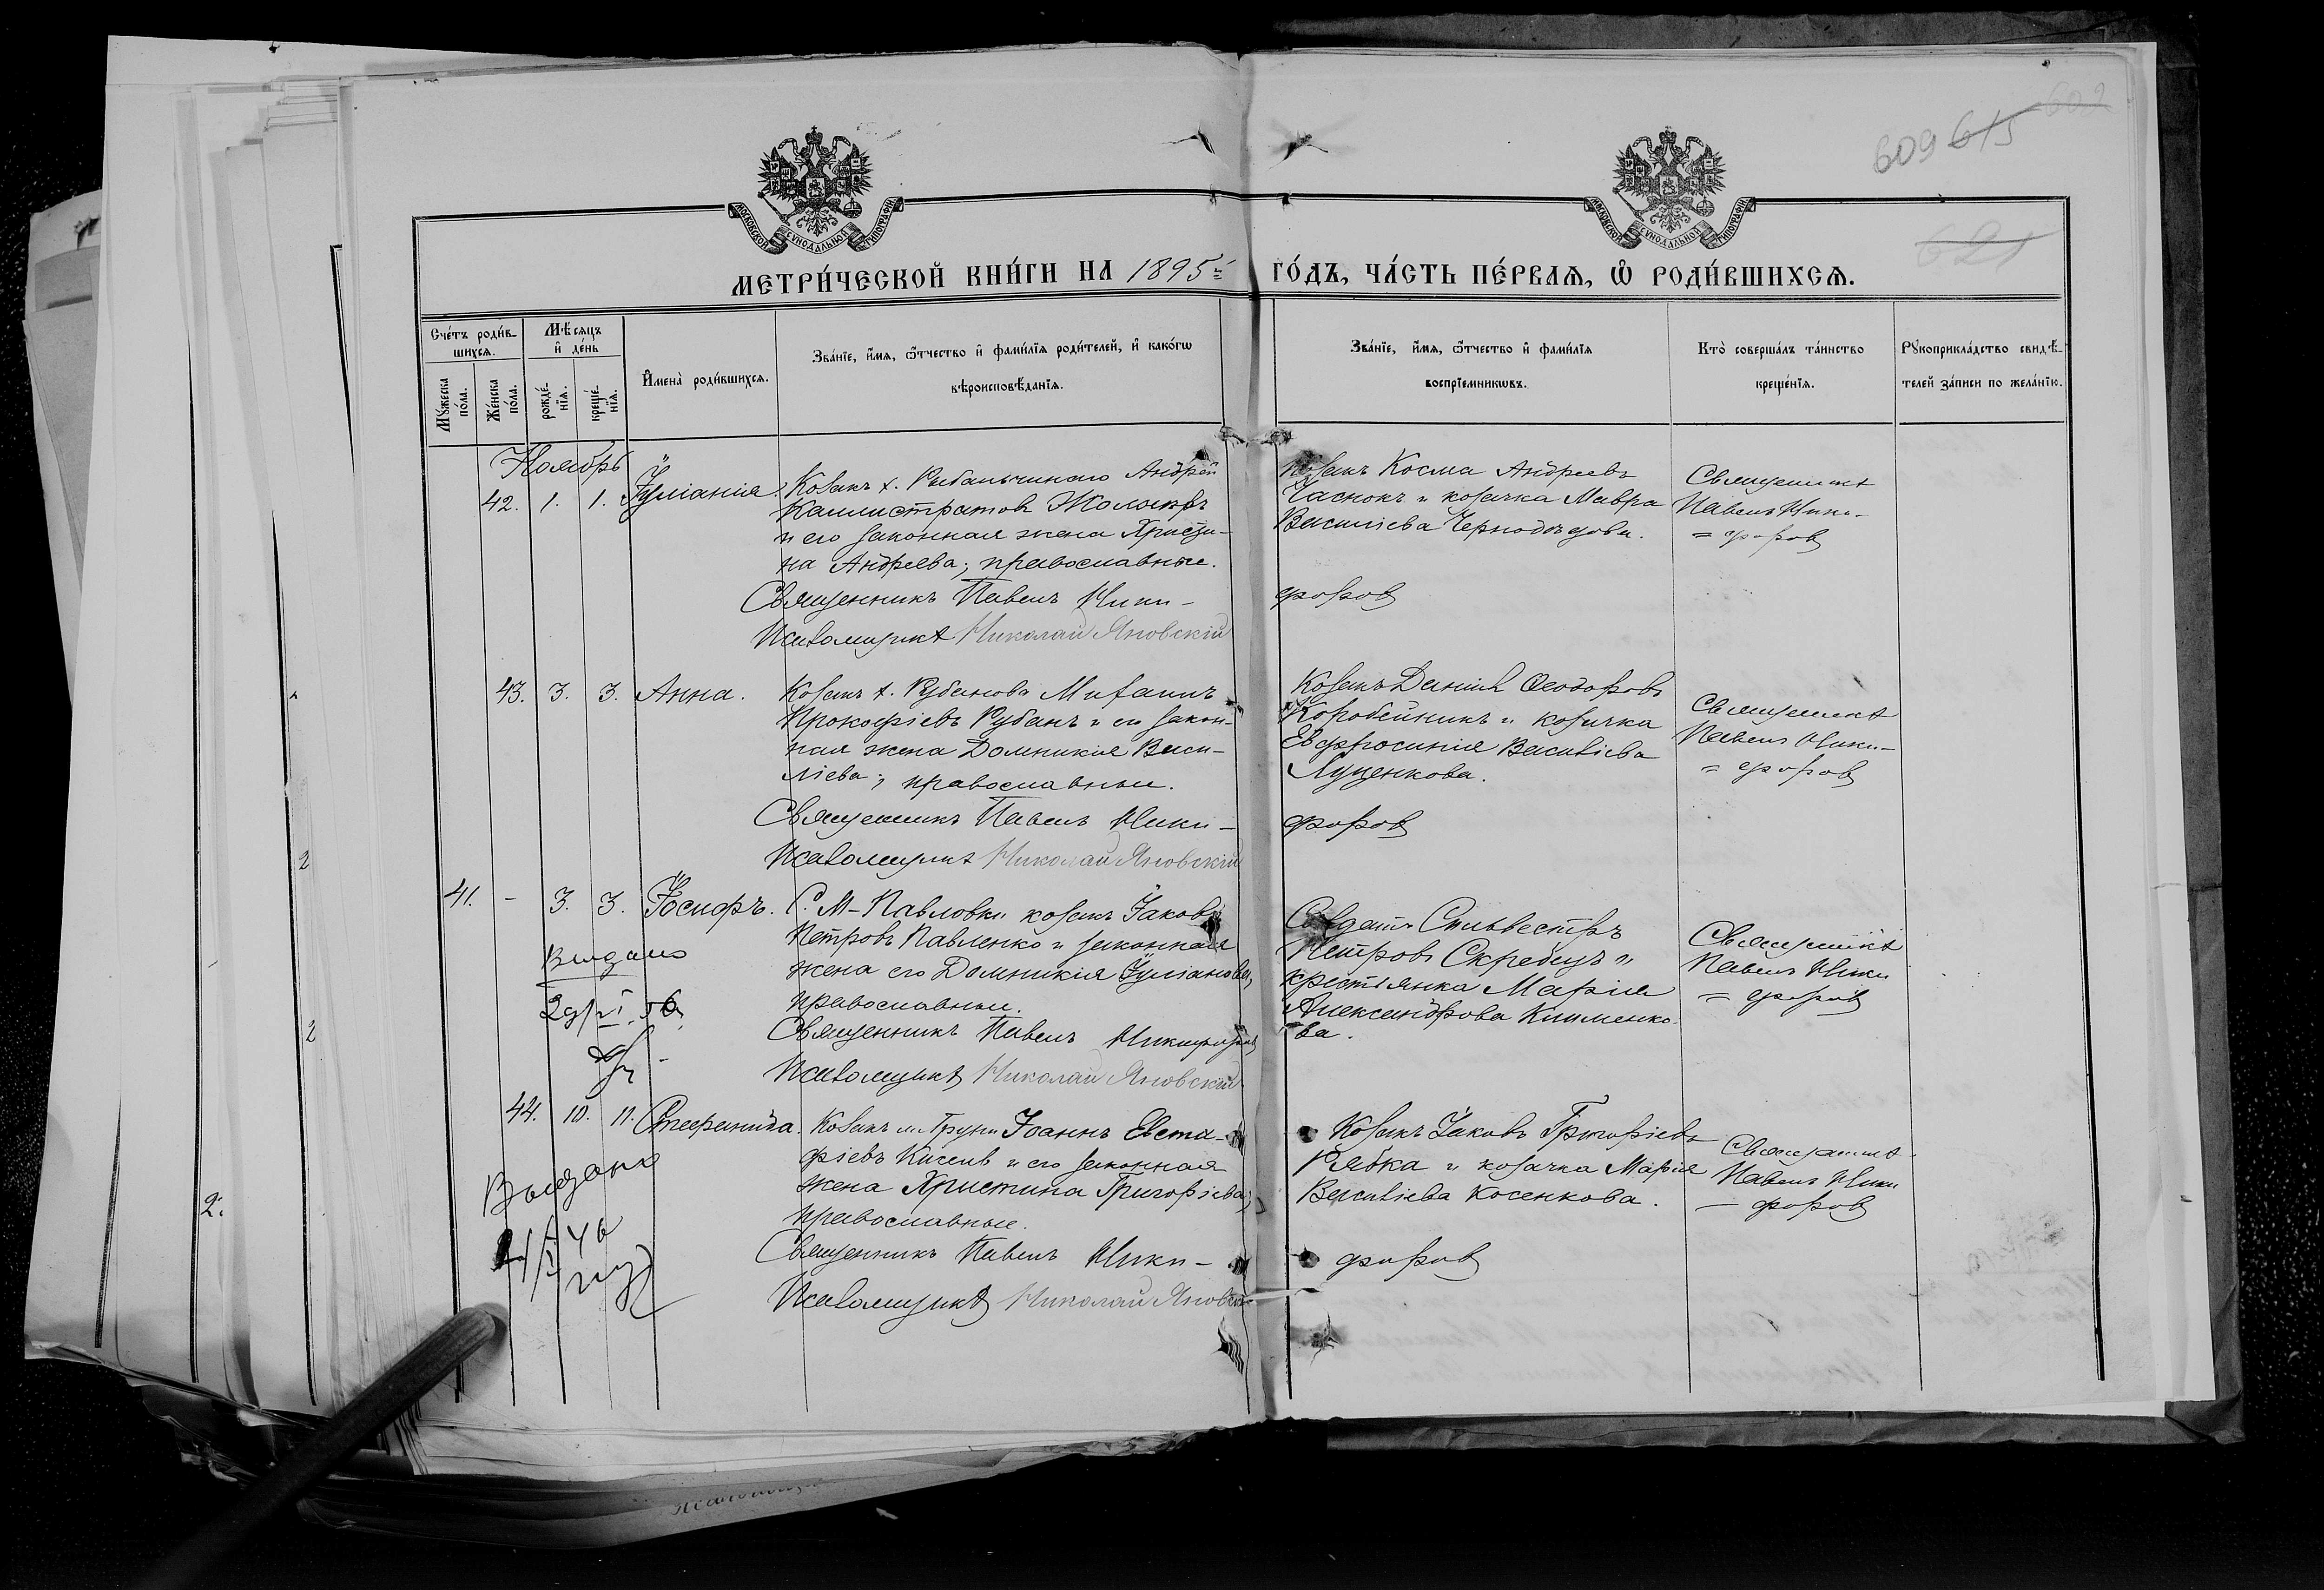 609 615 602
621
МОСКОВСКОЙ СУНОДАЛЬНОЙ ТИПОГРАФІИ
МОСКОВСКОЙ СУНОДАЛЬНОЙ ТИПОГРАФІИ
МЕТРИ́ЧЕСКОЙ КНИ́ГИ НА 1895й ГО́ДЪ, ЧА́СТЬ ПЕ́РВАѦ, Ѡ҆ РОДИ́ВШИХСѦ.
Сче́тъ роди́в-
шихсѧ.
Мꙋ́жеска по́ла.
Же́нска по́ла.
Мѣ́сѧцъ
и҆ де́нь
рожде́-
нїѧ.
креще́-
нїѧ.
И҆мена̀ роди́вшихсѧ.
Зва́нїе, и҆́мѧ, ѻ҆́тчество и҆ фами́лїѧ роди́телей, и҆ како́гѡ
вѣроисповѣ́данїѧ.
Зва́нїе, и҆́мѧ, ѻ҆́тчество и҆ фами́лїѧ
воспрїемникѡвъ.
Кто̀ соверша́лъ та́инство
креще́нїѧ.
Рꙋкоприкла́дство свидѣ́-
телей за́писи по жела́нїю.
Ноябрь
42. 1. 1. Іуліанія. Козакъ х. Андрей
Каллистратовъ
и его законная жена Христи-
на Андреева; православные.
Священникъ Павелъ Ники-
форов
Псаломщикъ Николай Яновскій
Козакъ Косма Андреевъ
Часнокъ и козачка Мавра
Василіева
Священникъ
Павелъ Ники-
= форов
43. 3. 3. Анна. Козакъ х. Рубанова Михаилъ
Прокофіевъ Рубанъ и его закон-
ная жена Домникія Васи-
ліева; православные.
Священникъ Павелъ Ники-
форов
Псаломщикъ Николай Яновскій
Козакъ Даніилъ Ѳеодоровъ
Коробейникъ и козачка
Евфросинія Василіева
Луценкова.
Священникъ
Павелъ Ники-
= форов
41. - 3. 3. Іосифъ. С. М-Павловки козакъ Іаковъ
Петровъ Павленко и законная
жена его Домникія Іуліанова,
православные.
Священникъ Павелъ Никифоровъ
Псаломщикъ Николай Яновскій
Выдано
29/VI.56
Солдатъ Сильвестръ
Петровъ Скребецъ и
крестьянка Марія
Александрова Клименко-
ва.
Священникъ
Павелъ Ники
= форов
44. 10. 11. Стефанида. Козакъ м. Груни Іоаннъ Евста-
фіевъ и его законная
жена Христина Григоріева,
православные.
Священникъ Павелъ Ники-
форов
Псаломщикъ Николай Яновскій
Выдано
Козакъ Іаковъ Григоріевъ
Рябка и козачка Марія
Василіева Косенкова.
Священникъ
Павелъ Ники
- форов
2
2
2.